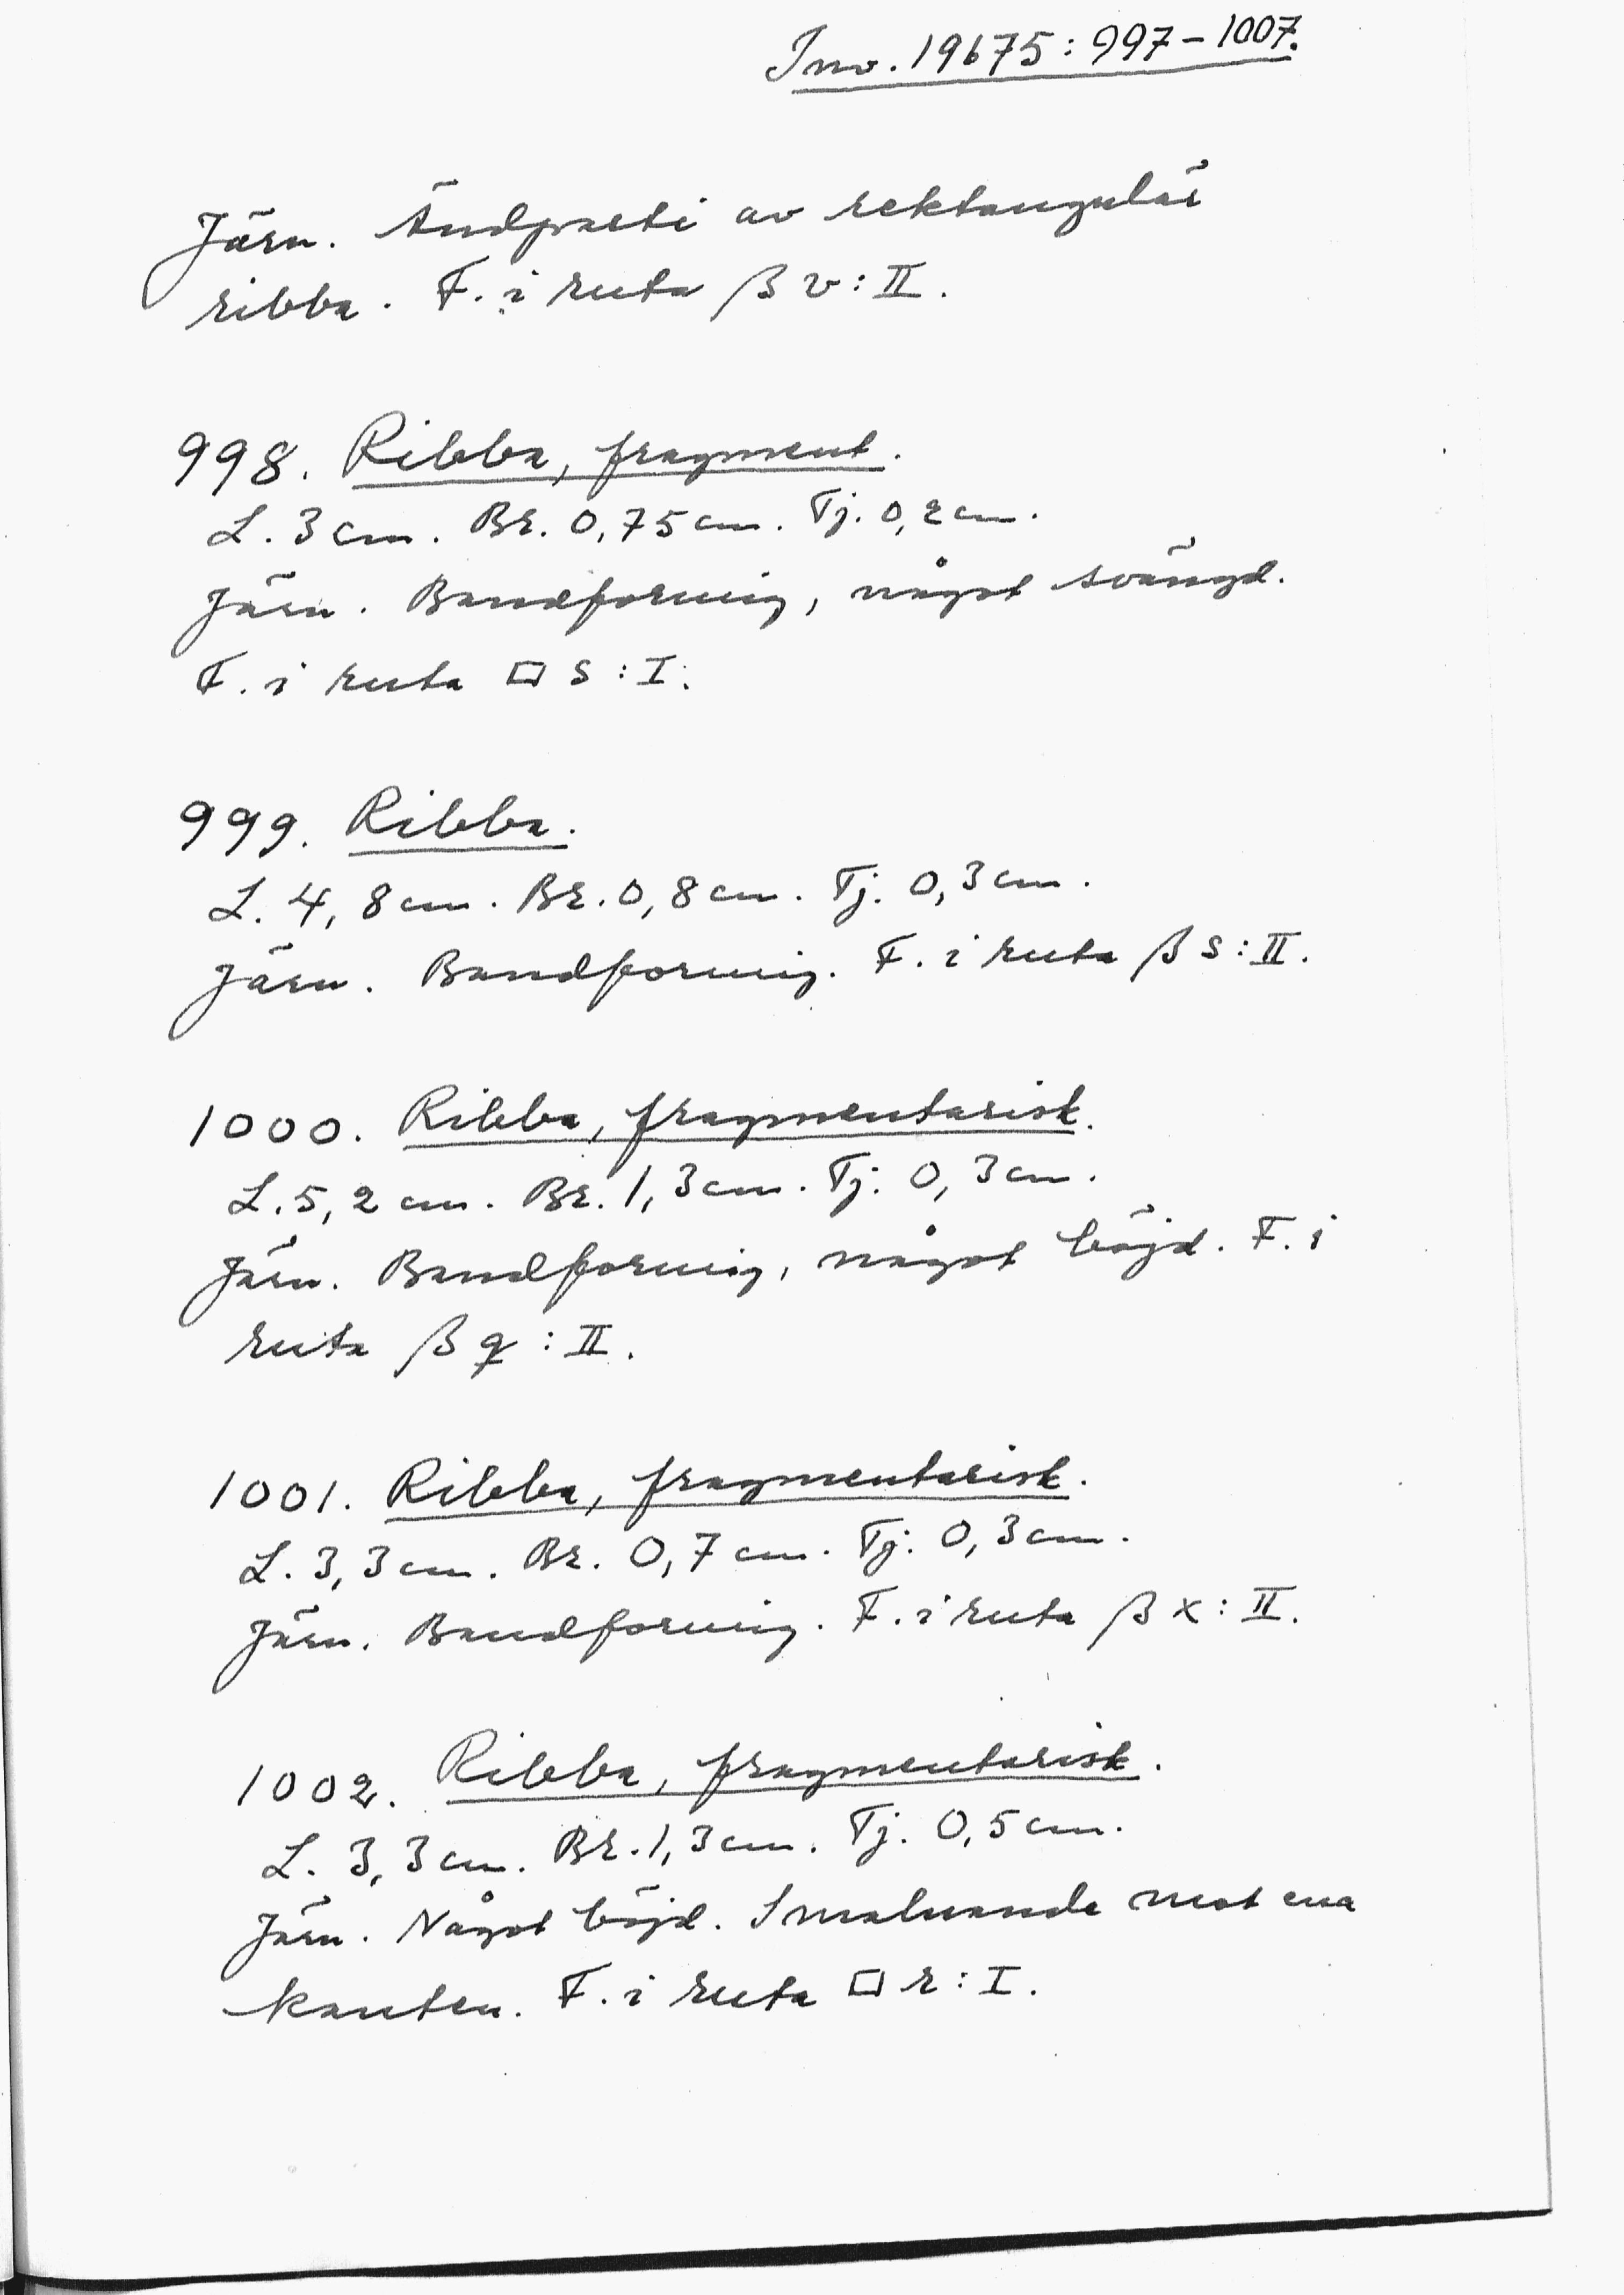 Inv. 19675: 997-1007.
Järn. Ändparti av rektangulär
ribba. F. i ruta β v: II.
998. Ribba, fragment.
L. 3 cm. Br. 0,75 cm. Tj. 0,2 cm.
Järn. Bandformig, något svängd.
F. i ruta □ s: I.
999. Ribba.
L. 4,8 cm. Br. 0,8 cm. Tj. 0,3 cm.
Järn. Bandformig. F. i ruta β s: II.
1000. Ribba, fragmentarisk.
L. 5,2 cm. Br. 1,3 cm. Tj. 0,3 cm.
Järn. Bandformig, något böjd. F. i
ruta β q: II.
1001. Ribba, fragmentarisk.
L. 3,3 cm. Br. 0,7 cm. Tj. 0,3 cm.
Järn. Bandformig. F. i ruta β x: II.
1002. Ribba, fragmentarisk.
L. 3,3 cm. Br. 1,3 cm. Tj. 0,5 cm.
Järn. Något böjd. Smalnande mot ena
kanten. F. i ruta □ r: I.